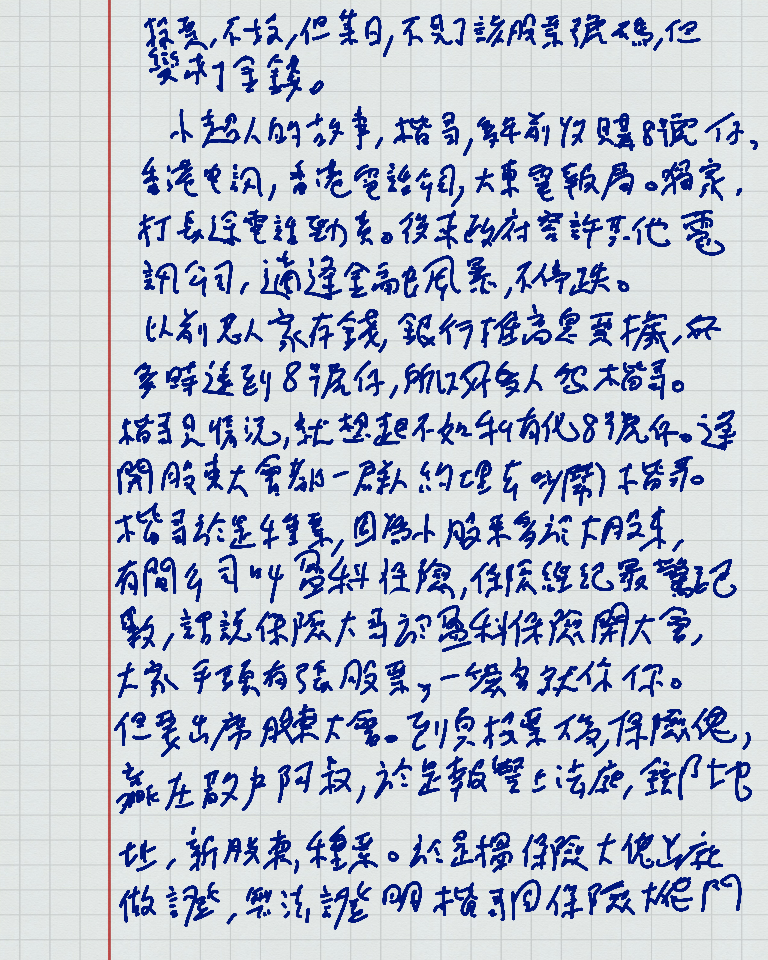 投票,不投,但某日,不見了該股票號碼,但
變來了金錢。
小超人的故事,楷哥,多年前收購8號仔,
香港電訊,香港電話公司,大東電報局。獨家,
打長途電話勁貴。後來政府容許其他電
訊公司,適逢金融風暴,不停跌。
以前老人家存錢,銀行推高息要機,好
多時達到8號仔,所以好多人怨楷哥。
楷哥見情況,就想起不如利有代8號仔。逢
開股東大會都一群人約埋去吵鬧楷哥。
楷哥於是種票,因為小股東多於大股東,
有間公司叫盈科保險,保險經紀最驚記
數,話說保險大哥於盈科保險開大會,
大家手頭有張股票,一簽名就你你。
但要出席股東大會。到見投票後,保險佬,
贏在散戶阿叔,於是報警上法庭,錢門地
址,新股東,種票。於是搵保險大佬上庭
做證,無法證明楷哥同保險大佬門